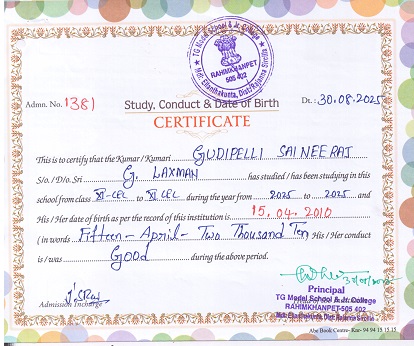 TG Model School & Jr. College
RAHIMKHANPET
505 402
Mdl: Ellanthakunta, Dist: Rajanna Sircilla
Admn. No. 1381
Study, Conduct & Date of Birth
Dt. : 30.08.2025
CERTIFICATE
This is to certify that the Kumar / Kumari GUDIPELLI SAI NEERAJ
S/o. / D/o. Sri G. LAXMAN has studied / has been studying in this
school from class XI-CEC to XI CEC during the year from 2025 to 2025 and
His / Her date of birth as per the record of this institution is 15.04.2010
( in words Fifteen - April - Two Thousand Ten His / Her conduct
is / was Good during the above period.
Admission Incharge
Principal
TG Model School & Jr. College
RAHIMKHANPET-505 402
Mdl: Ellanthakunta, Dist: Rajanna Sircilla
Abc Book Centre- Knr- 94 94 15 15 15